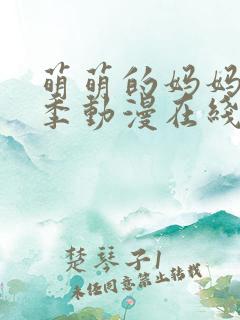 萌萌的妈妈
季動漫在綫
楚琴子1
未经同意禁止转载